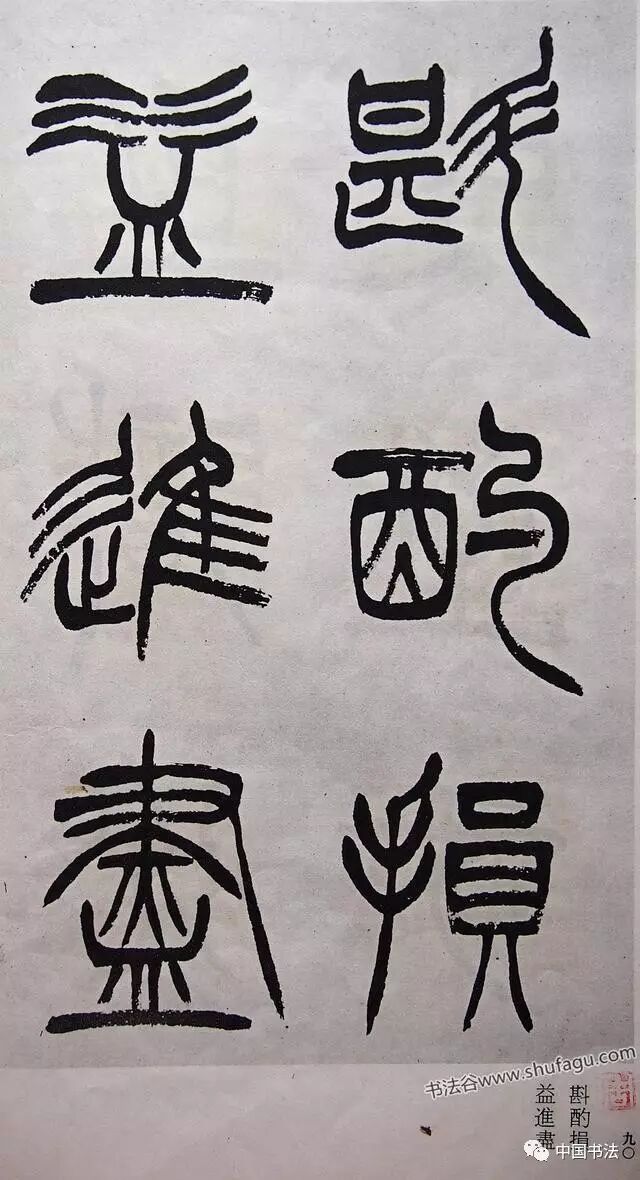 斟酌損
益進盡
书法谷www.shufagu.com
斟酌損
益進盡
九〇
中国书法